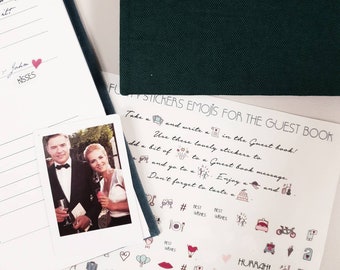 John
KISSES
STICKERS EMOJIS FOR THE GUEST BOOK
Take a and write a in the Guest book!
Use these lovely stickers to
add a bit of to a Guest book message
and go to a Enjoy a and
Don't forget to taste a
# BEST WISHES BEST WISHES #
BEST WISHES
HURRAH!